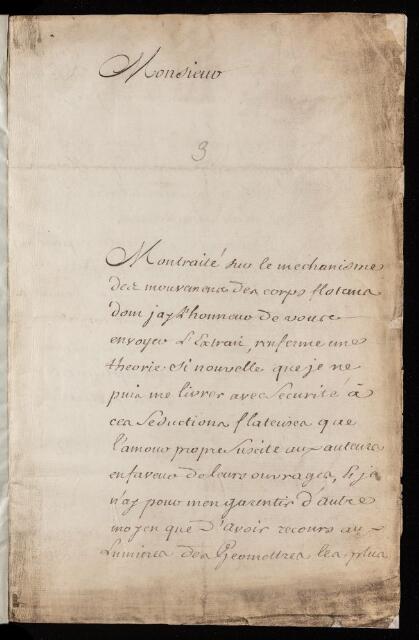 Monsieur
3
Montraité sur le mechanisme
des mouvemens des corps flotans
dom jay l'honneur de vous
envoyer l'Extrait, renferme une
theorie si nouvelle que je ne
puis me livrer avec securité à
ces seductions flateuses que
l'amour propre suscite aux auteurs
enfaveur de leurs ouvrages, Et je
n'ay pour men garentir d'autre
moyen que d'avoir recours aux
Lumieres des Geomettres les plus